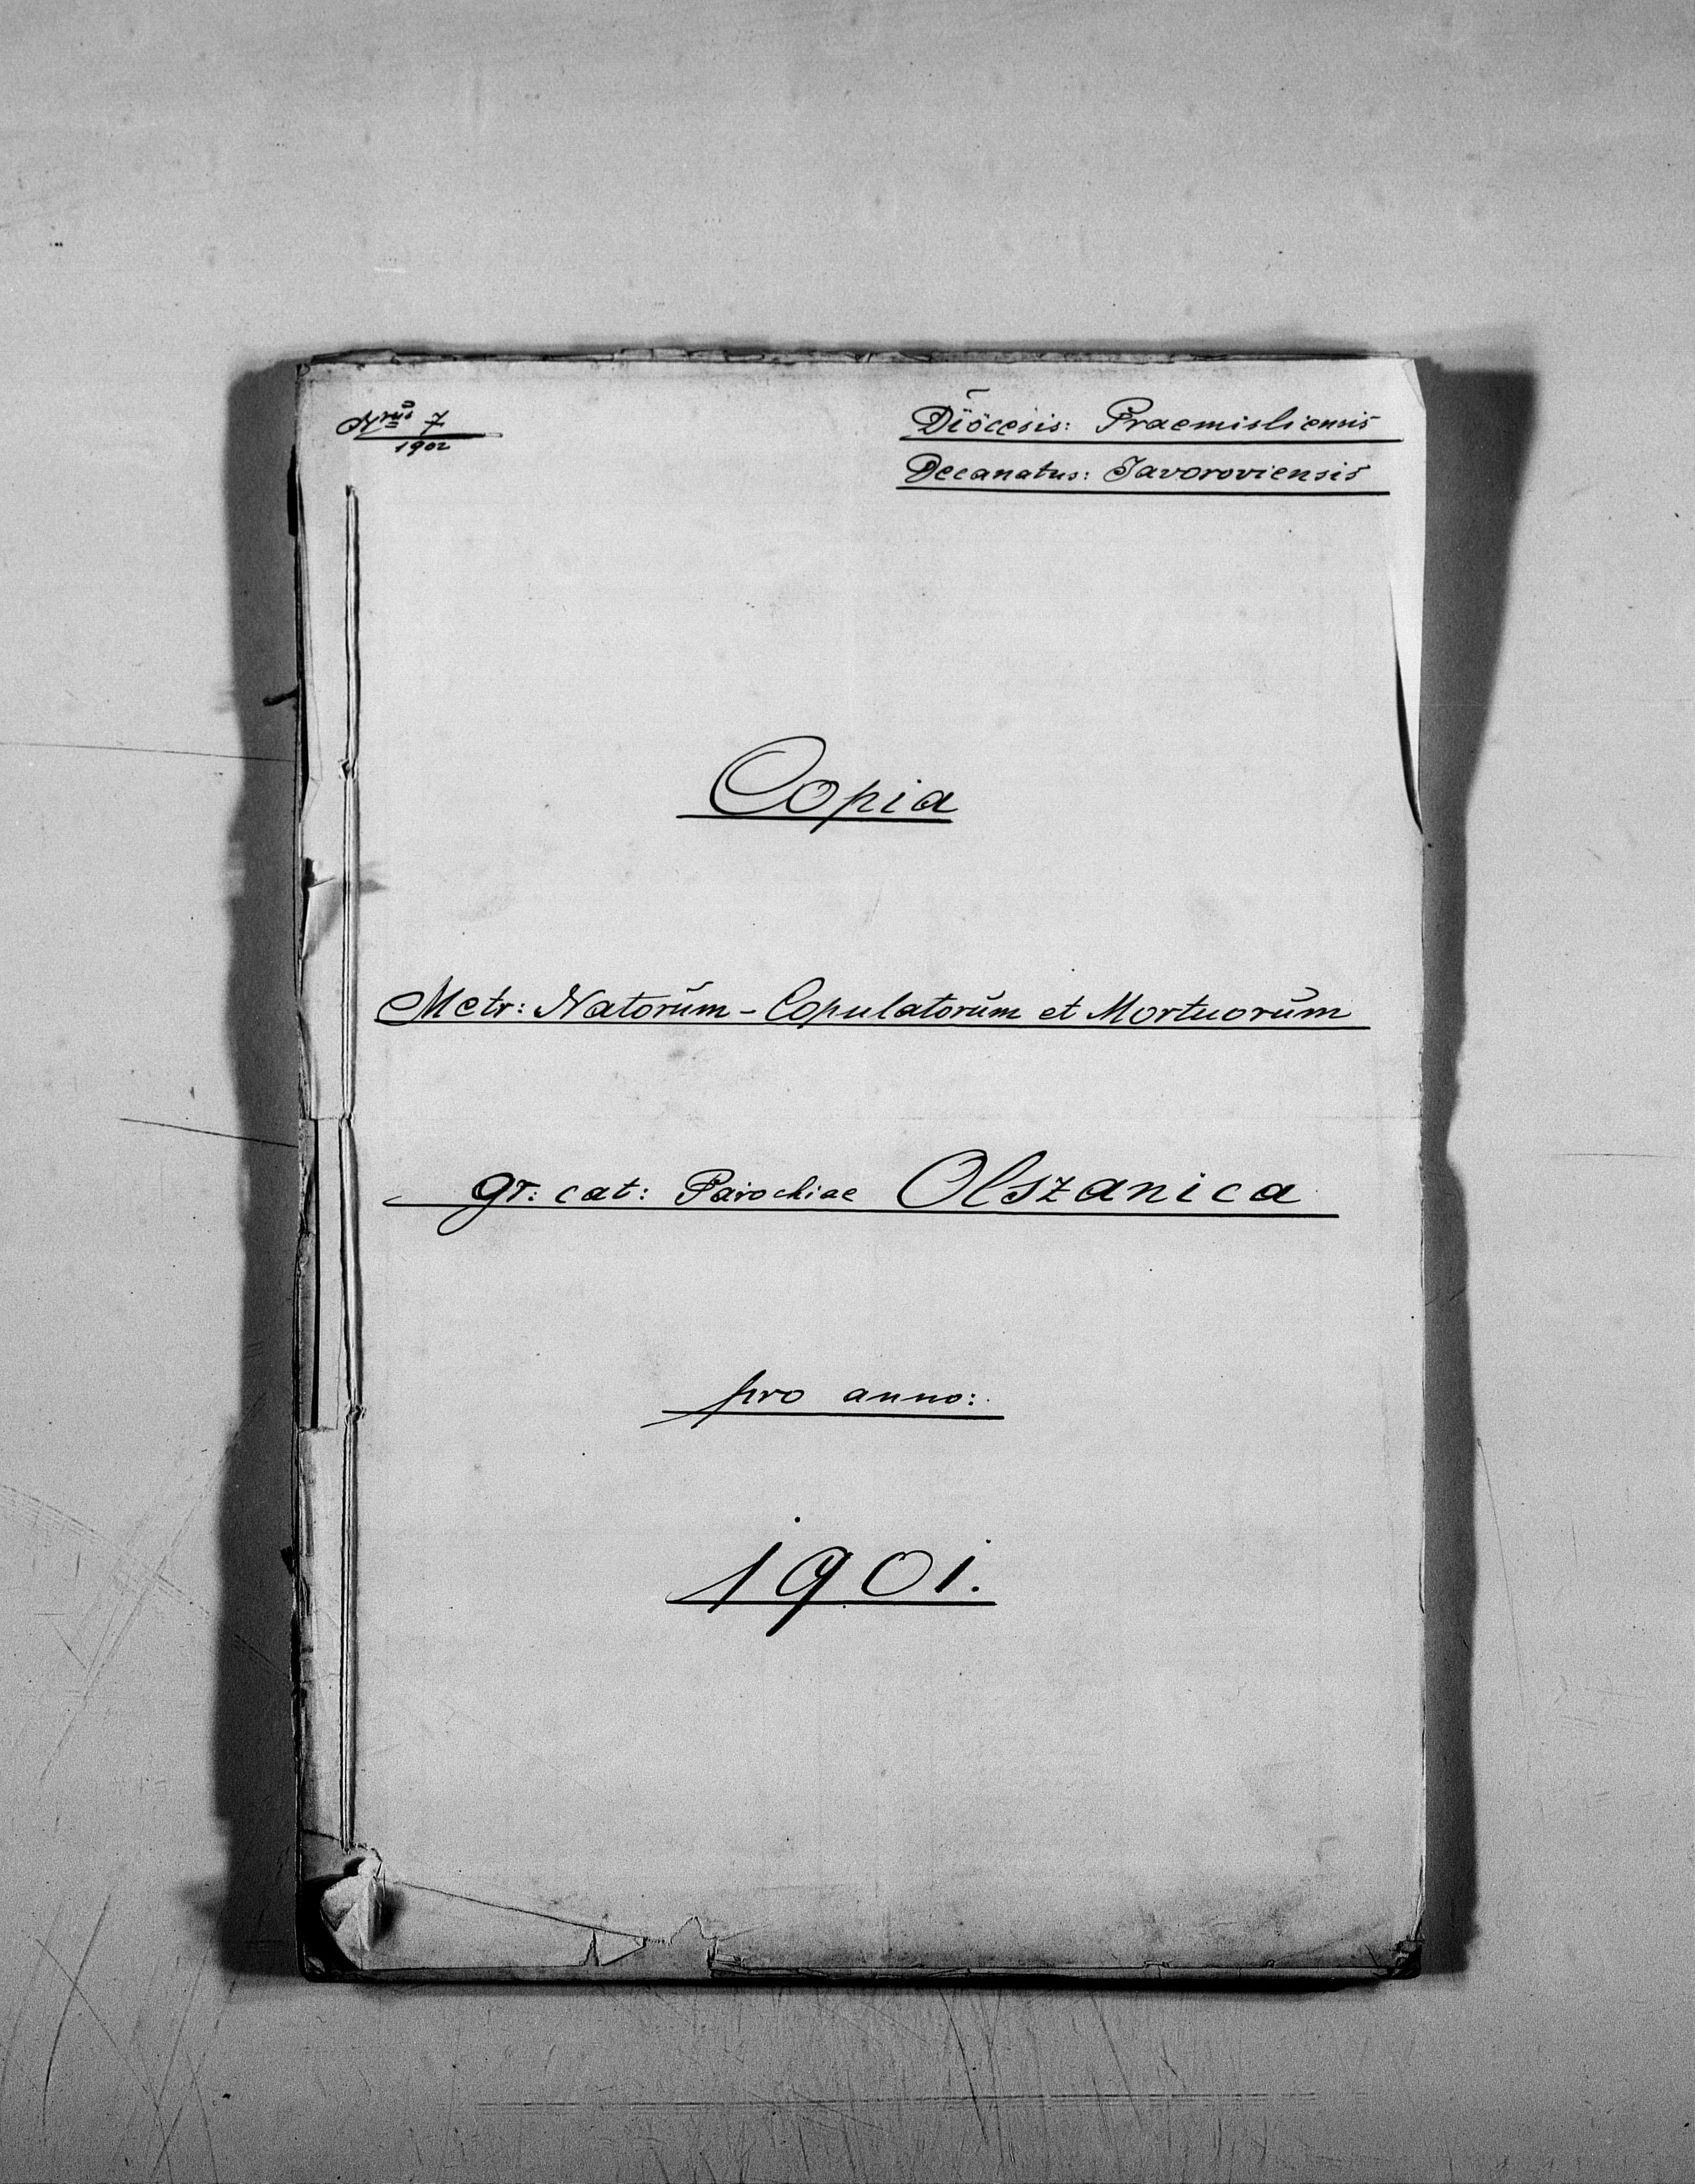 Nrus 7
1902
Diöcesis: Praemisliensis
Decanatus: Javoroviensis
Copia
Metr: Natorŭm - Copulatorŭm et Mortuorŭm
gr: cat: Parochiae Olszanica
pro anno:
1901.